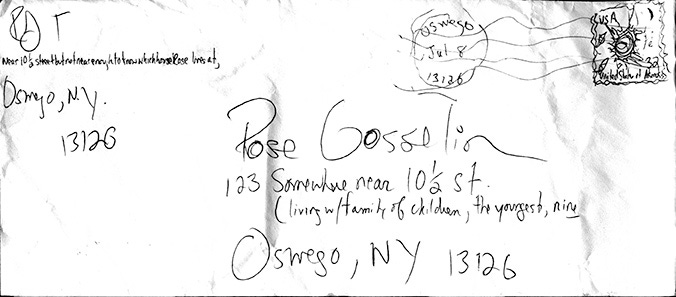 near 10½ street but not near enough to know which house Rose lives at,
Oswego, N.Y.
13126
Oswego
Jul 8
13126
USA
32
United States of America
Rose Gosselin
123 Somewhere near 10½ st.
(living w/family of children, the youngest, nine
Oswego, NY 13126